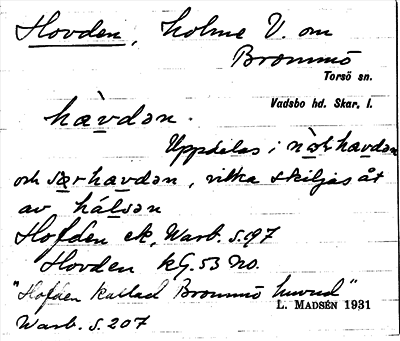 Hovden, holme V. om
Brommö
Torsö sn.
Vadsbo hd. Skar. l.
hàvdən.
Uppdelas i nòlhavdən
och sœrhavdən, vilka skiljas åt
av hálsən
Hofden ek, Warb. s. 97
Hovden kG. 53 NO.
"Hofden kallad Brommö huvud"
L. MADSÉN 1931
Warb. s. 207